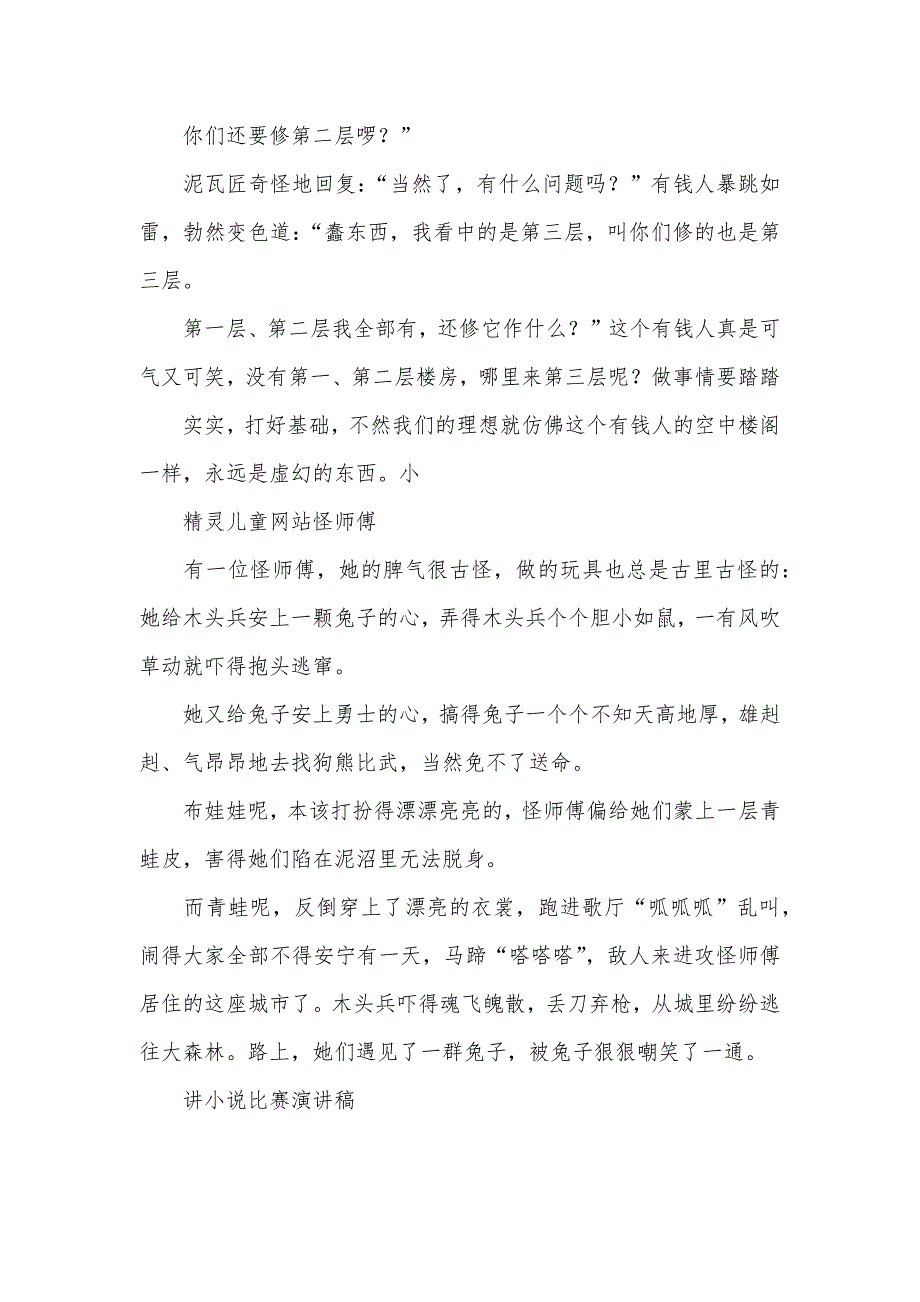 你们还要修第二层啰？”
泥瓦匠奇怪地回复：“当然了，有什么问题吗？”有钱人暴跳如
雷，勃然变色道：“蠢东西，我看中的是第三层，叫你们修的也是第
三层。
第一层、第二层我全部有，还修它作什么？”这个有钱人真是可
气又可笑，没有第一、第二层楼房，哪里来第三层呢？做事情要踏踏
实实，打好基础，不然我们的理想就仿佛这个有钱人的空中楼阁
一样，永远是虚幻的东西。小
精灵儿童网站怪师傅
有一位怪师傅，她的脾气很古怪，做的玩具也总是古里古怪的：
她给木头兵安上一颗兔子的心，弄得木头兵个个胆小如鼠，一有风吹
草动就吓得抱头逃窜。
她又给兔子安上勇士的心，搞得兔子一个个不知天高地厚，雄赳
赳、气昂昂地去找狗熊比武，当然免不了送命。
布娃娃呢，本该打扮得漂漂亮亮的，怪师傅偏给她们蒙上一层青
蛙皮，害得她们陷在泥沼里无法脱身。
而青蛙呢，反倒穿上了漂亮的衣裳，跑进歌厅“呱呱呱”乱叫，
闹得大家全部不得安宁有一天，马蹄“嗒嗒嗒”，敌人来进攻怪师傅
居住的这座城市了。木头兵吓得魂飞魄散，丢刀弃枪，从城里纷纷逃
往大森林。路上，她们遇见了一群兔子，被兔子狠狠嘲笑了一通。
讲小说比赛演讲稿